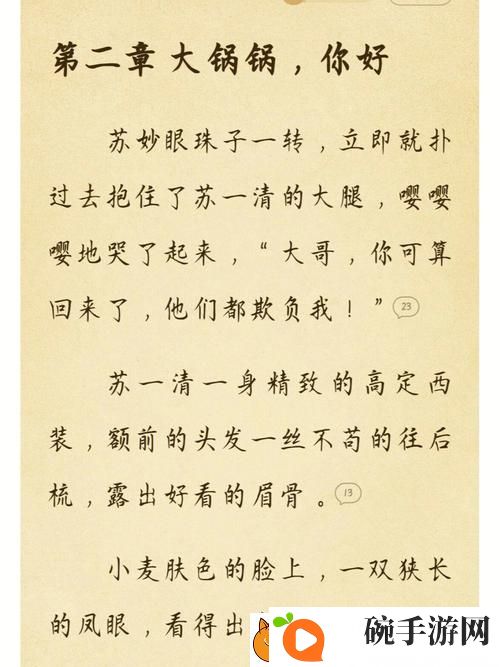 第二章 大锅锅，你好
苏妙眼珠子一转，立即就扑
过去抱住了苏一清的大腿，嘤嘤
嘤地哭了起来，“大哥，你可算
回来了，他们都欺负我！”23
苏一清一身精致的高定西
装，额前的头发一丝不苟的往后
梳，露出好看的眉骨。13
小麦肤色的脸上，一双狭长
的凤眼，看得出
碗手游网